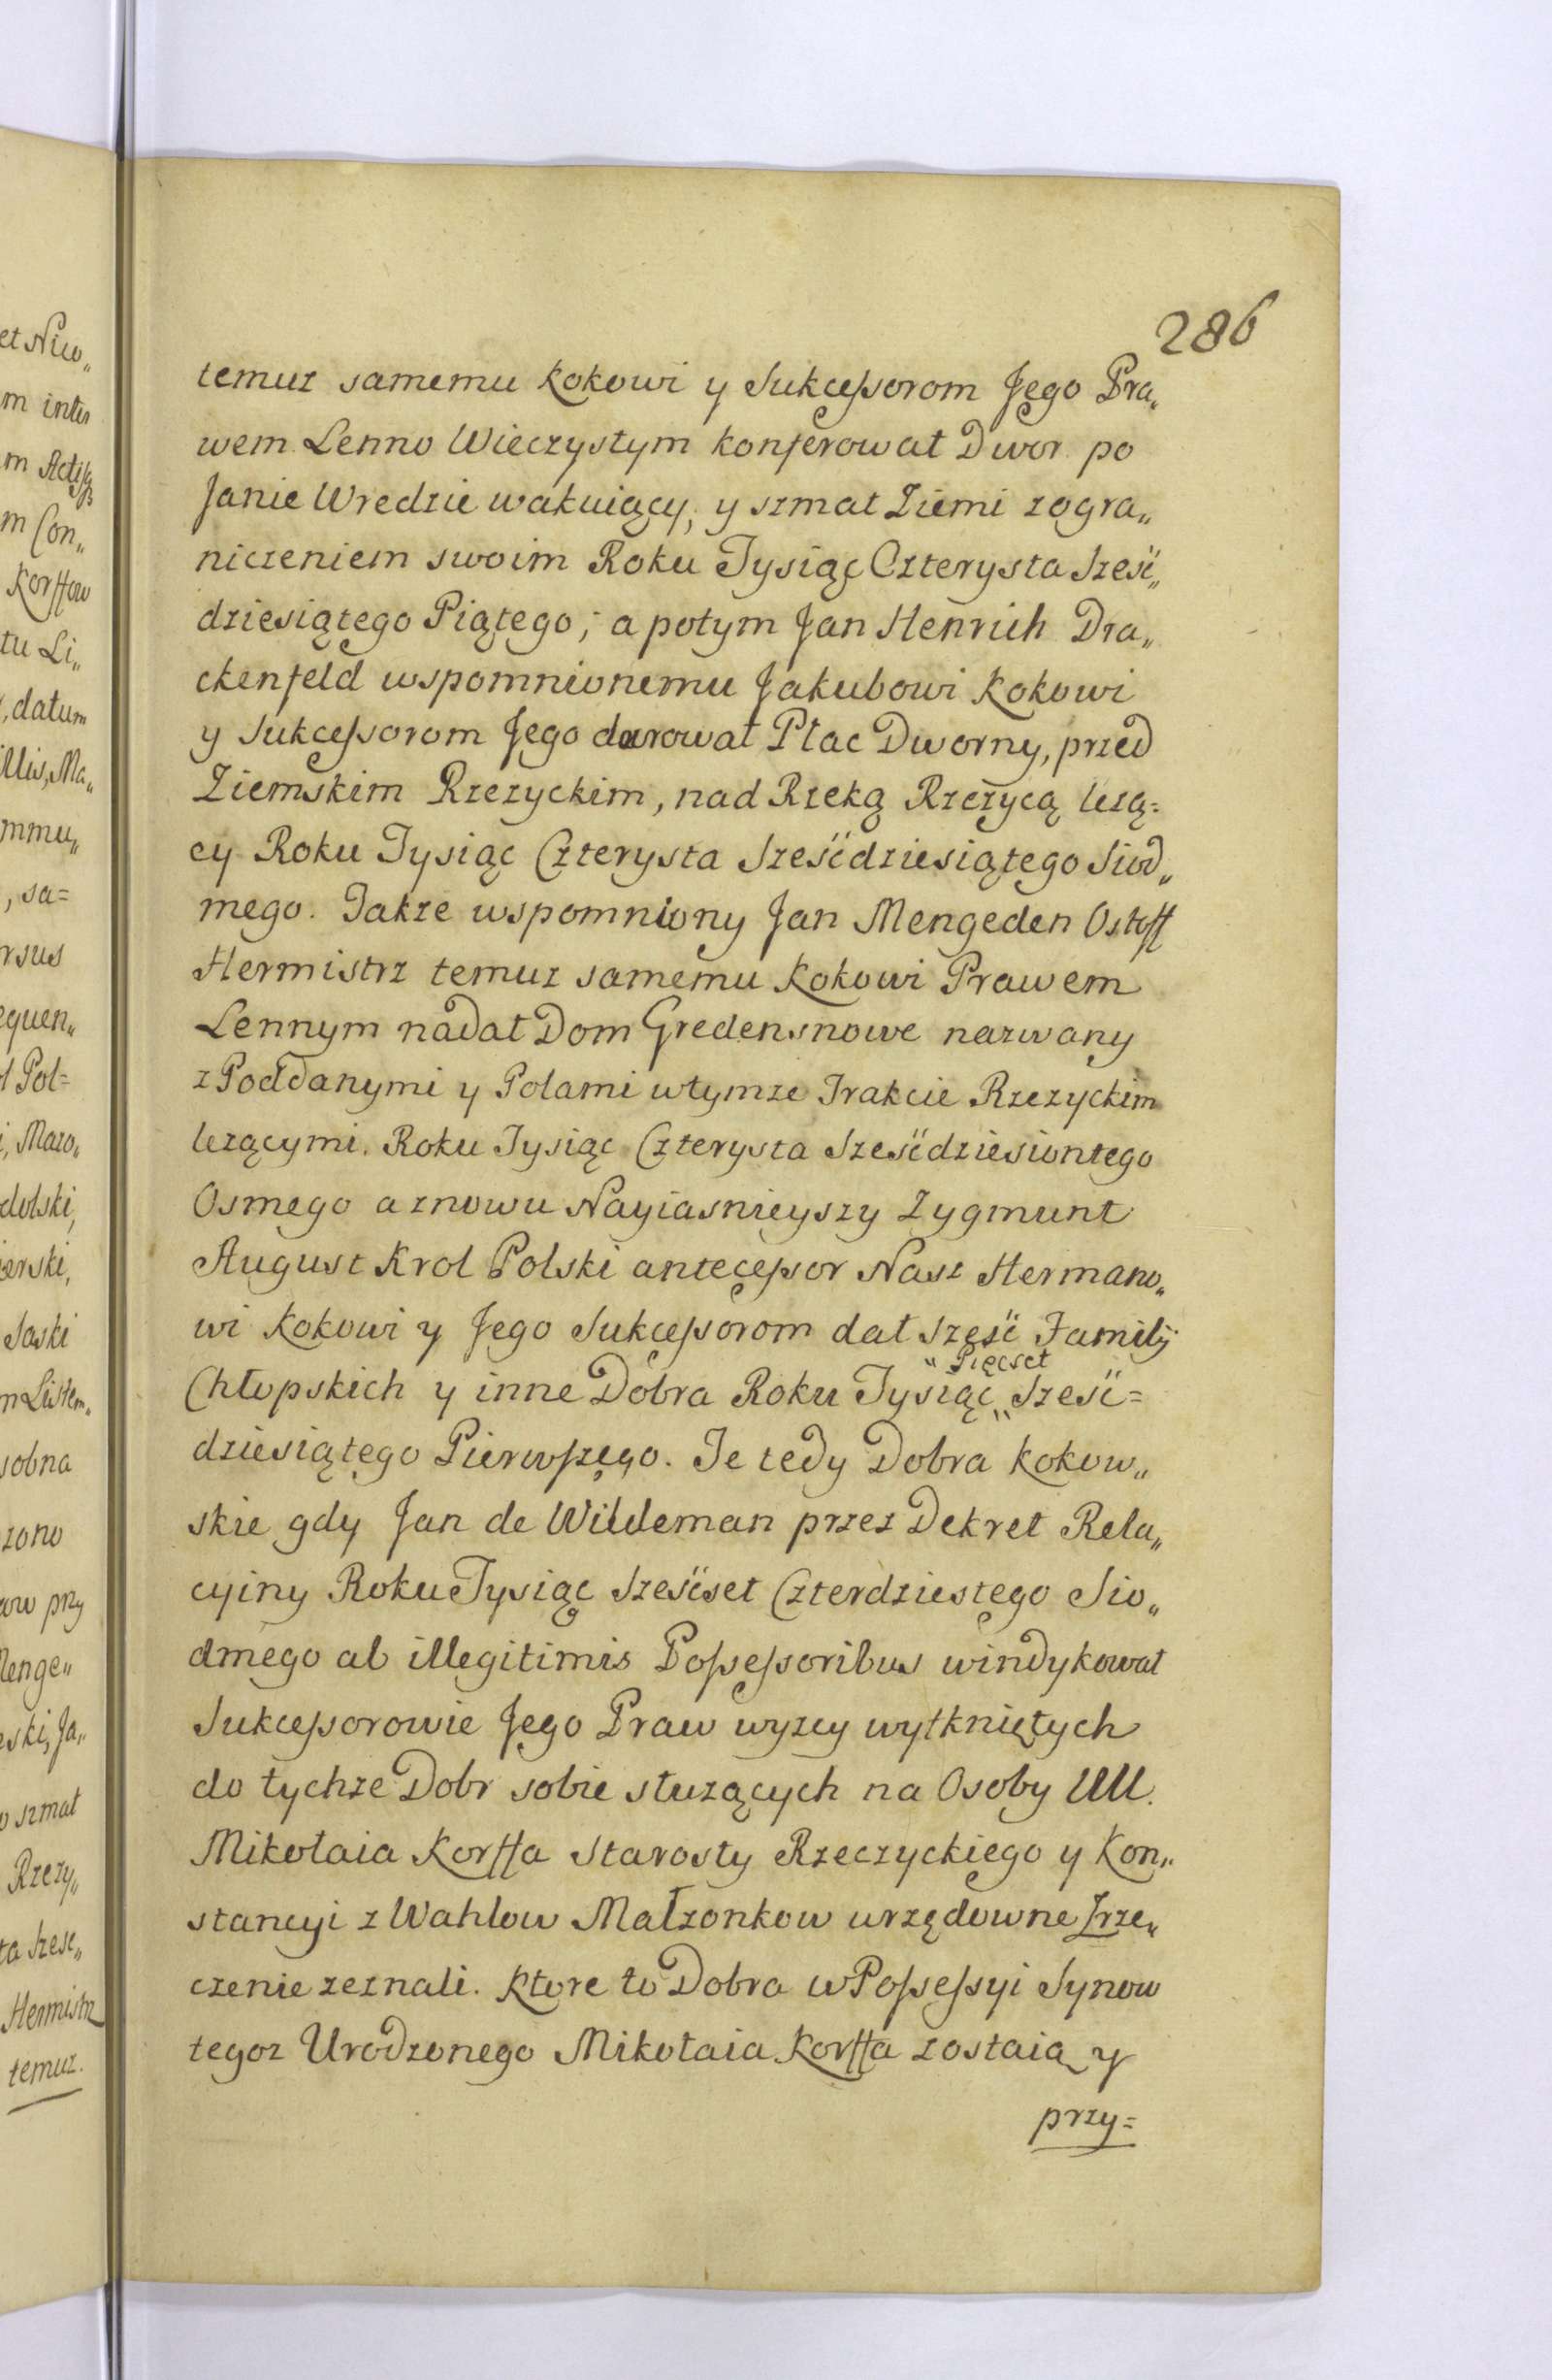 286
temuz samemu Kokowi y Sukcessorom Jego Pra„
wem Lenno Wieczystym konferował Dwor po
Janie Wredzie wakuiący, y szmat Ziemi zogra„
niczeniem swoim Roku Tysiąc Czterysta Sześć„
dziesiątego Piątego; a potym Jan Henrich Dra„
ckenfeld wspomnionemu Jakubowi Kokowi
y Sukcessorom Jego darował Plac Dworny, przed
Ziemskim Rzezyckim, nad Rzeką Rzeżycą leżą=
cy Roku Tysiąc Czterysta Sześćdziesiątego Siod„
mego. Także wspomniony Jan Mengeden Ostoff
Hermistrz temuz samemu Kokowi Prawem
Lennym nadał Dom Gredensnowe nazwany
z Poddanymi y Polami wtymze Trakcie Rzezyckim
lezącymi. Roku Tysiąc Czterysta Sześćdziesiontego
Osmego a znowu Nayiasnieyszy Zygmunt
August Krol Polski antecessor Nasz Hermano„
wi Kokowi y Jego Sukcessorom dał sześć Familij
„ Pięcset
Chłopskich y inne Dobra Roku Tysiąc „ Sześć=
dziesiątego Pierwszego. Te tedy Dobra Kokow„
skie gdy Jan de Wildeman przez Dekret Rela„
cyiny Roku Tysiąc Sześćset Czterdziestego Sio„
dmego ab illegitimis Possessoribus windykował
Sukcessorowie Jego Praw wyzey wytkniętych
do tychze Dobr sobie służących na Osoby UU.
Mikołaia Korffa Starosty Rzeczyckiego y Kon„
stancyi z Wahlow Małżonkow urzędowne Zrze„
czenie zeznali. Ktore to Dobra w Possessyi Synow
tegoz Urodzonego Mikołaia Korffa zostaią y
przy=